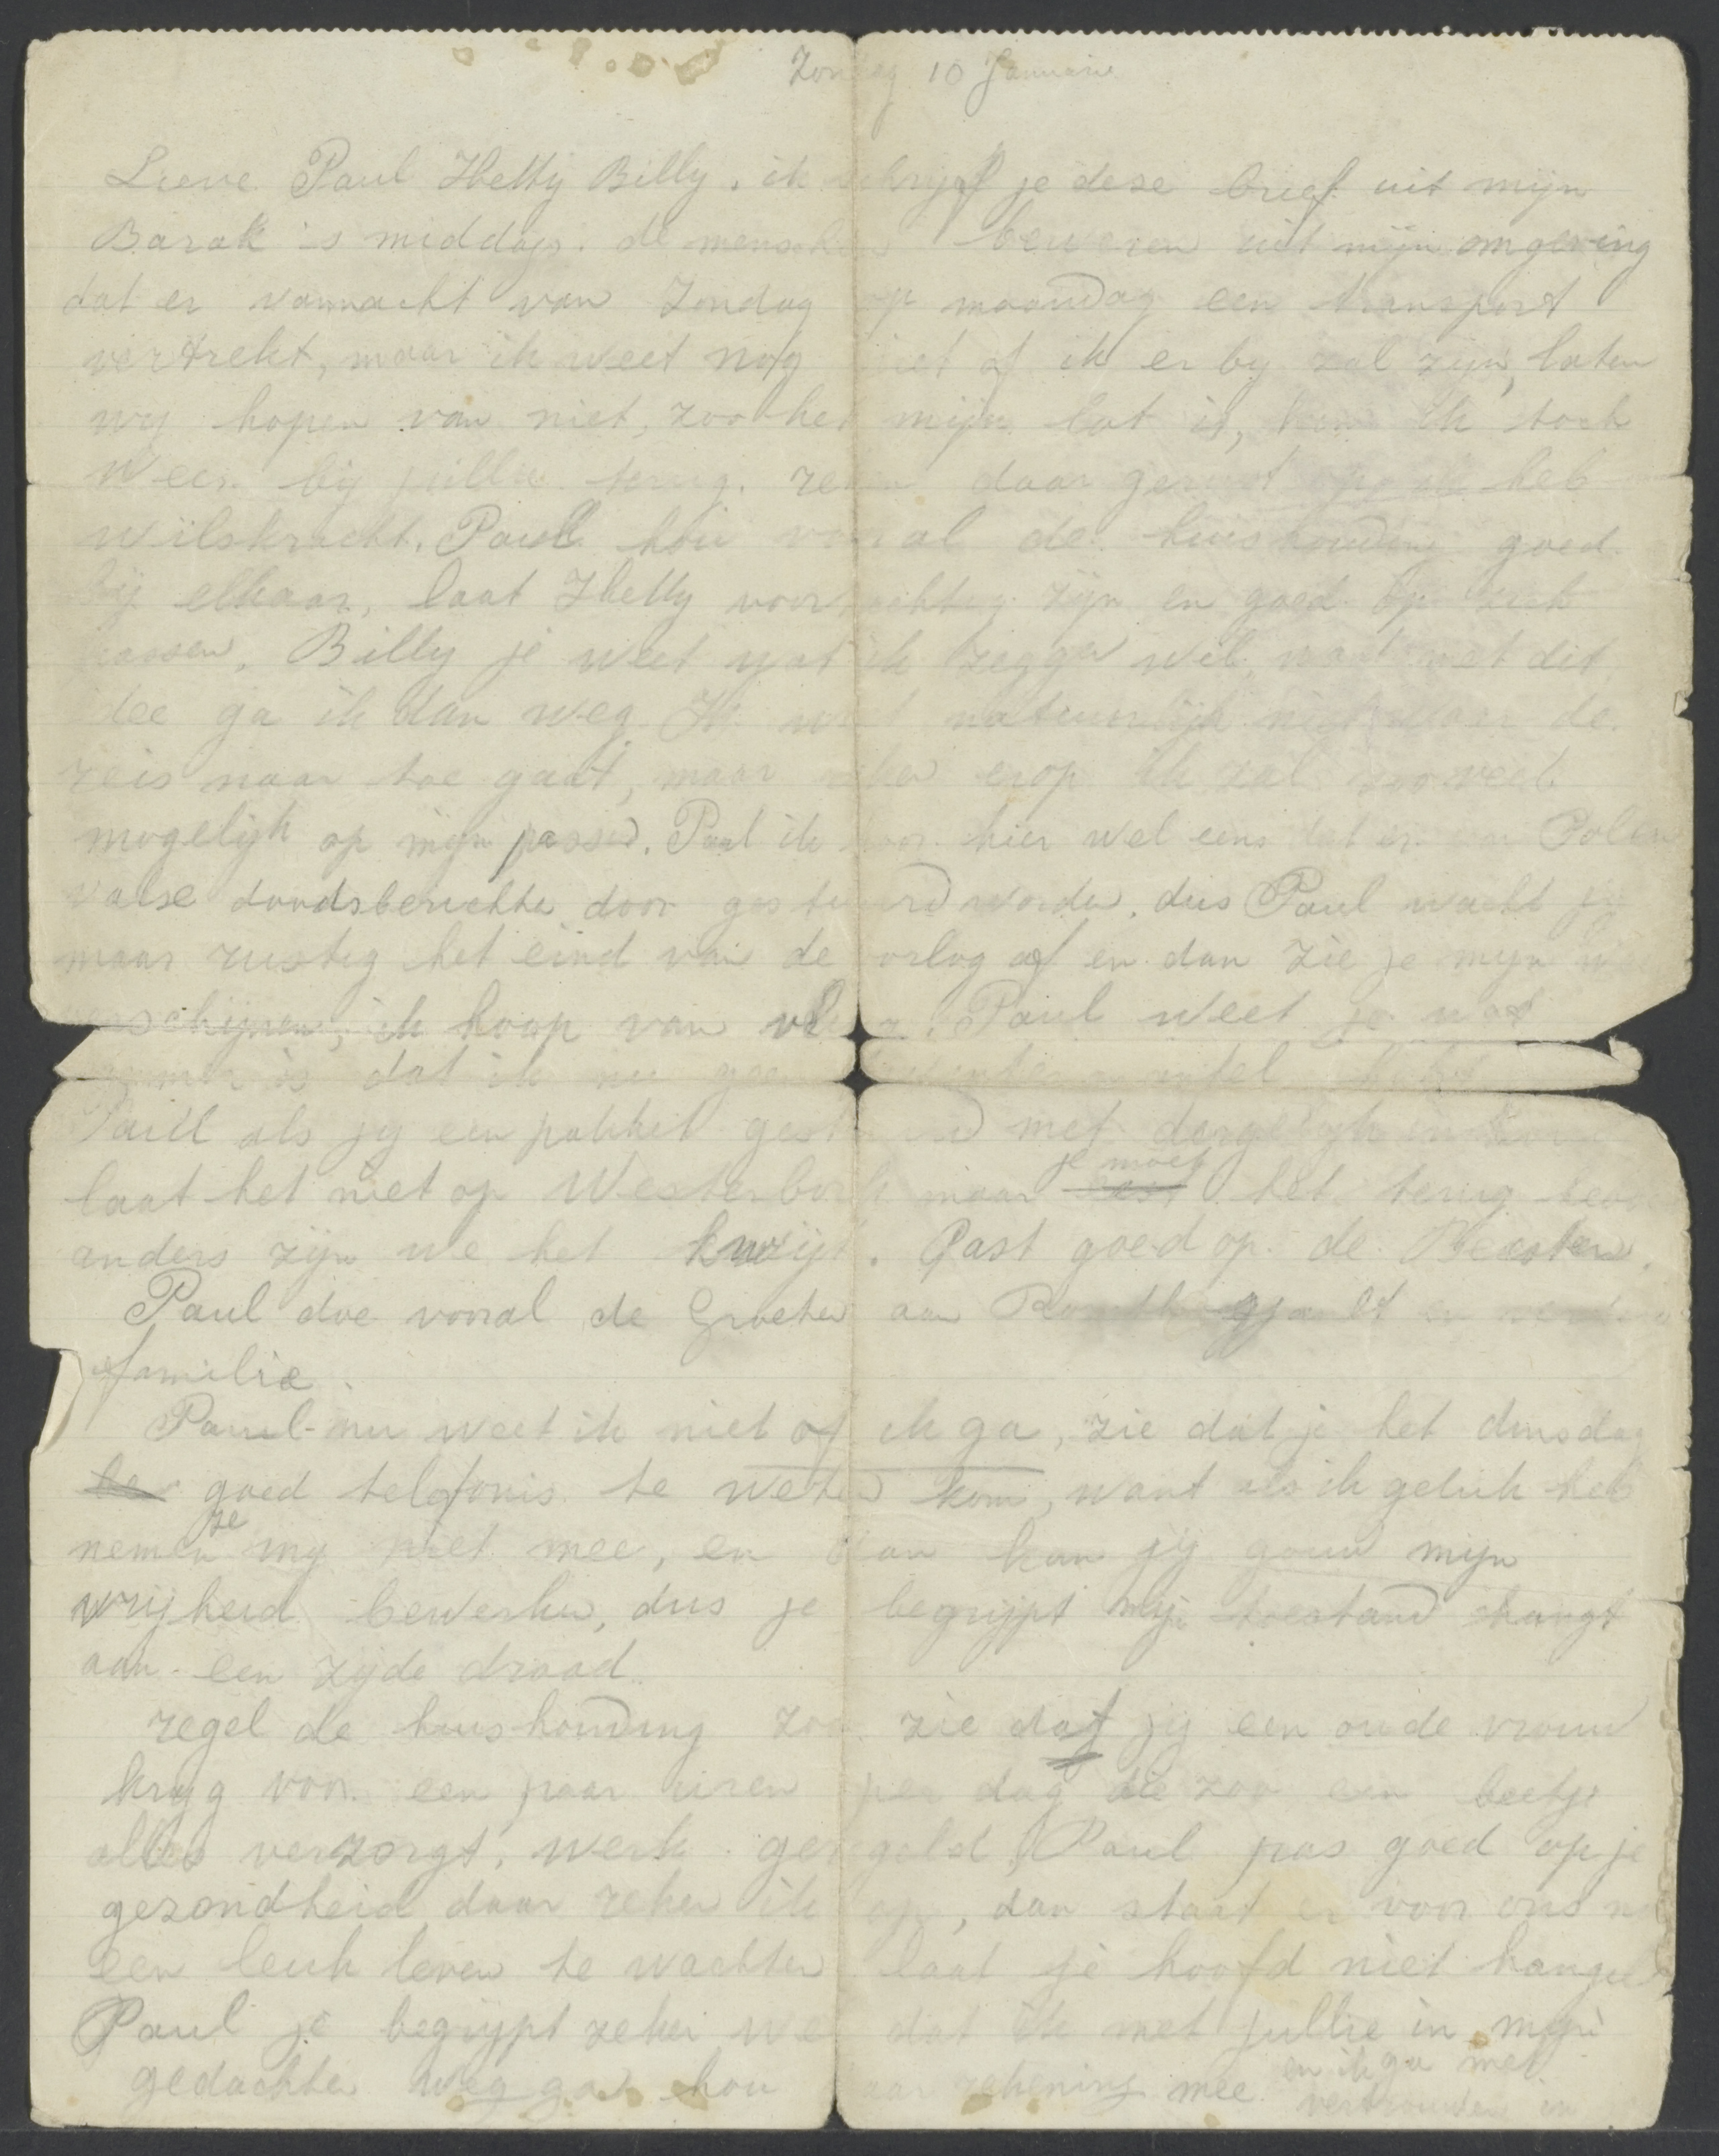 Zondag 10 Januarie
Lieve Paul Hetty Billy. ik schrijf je dese brief uit mijn
Barak 's middags. de menschen beweren uit mijn omgeving
dat er vannacht van Zondag op maandag een transport
vertrekt, maar ik weet nog niet of ik er by zal zijn, laten
wy hopen van niet, zoo het mijn lot is, kom ik toch
weer bij jullie terug. reken daar gerust op ik heb
wilskracht. Paul hou vooral de huishouding goed
bij elkaar, laat Hetty voorzichtig zijn en goed op zich
passen. Billy je weet wat ik zegge wil, want met dit
idee ga ik dan weg. Ik weet natuurlijk niet waar de
reis naar toe gaat, maar reken erop ik zal zooveel
mogelijk op mijn passen. Paul ik hoor hier wel eens dat er in Polen
valse doodsberichte door gestuurd worden, dus Paul wacht jij
maar rustig het eind van de oorlog af en dan zie je mijn weer
verschijnen, ik hoop van vlug. Paul weet je wat
jammer is dat ik nu geen wintermantel hebt
Paul als jy een pakket gestuurd met dergelijk
laat het niet op Westerbork maar je moet het terug
anders zijn we het kwijt. Past goed op de Beesten.
Paul doe vooral de Groeten aan
familie.
Paul nu weet ik niet of ik ga, zie dat je het dinsdag
goed telefonis te weten kom, want als ik geluk heb
nemen ze my niet mee, en dan kan jij gauw mijn
vrijheid bewerken, dus je begrijpt mijn toestand hangt
aan een zijde draad.
regel de huishouding zoo zie dat jy een oude vrouw
kryg voor een paar uren per dag die zoo een beetje
alles verzorgt, werk geregeld, Paul pas goed op je
gezondheid daar reken ik op, dan staat er voor ons
een leuk leven te wachten laat je hoofd niet hangen
Paul je begrijpt zeker wel dat ik met jullie in mijn
gedachten weg ga hou daar rekening mee en ik ga met
vertrouwen in